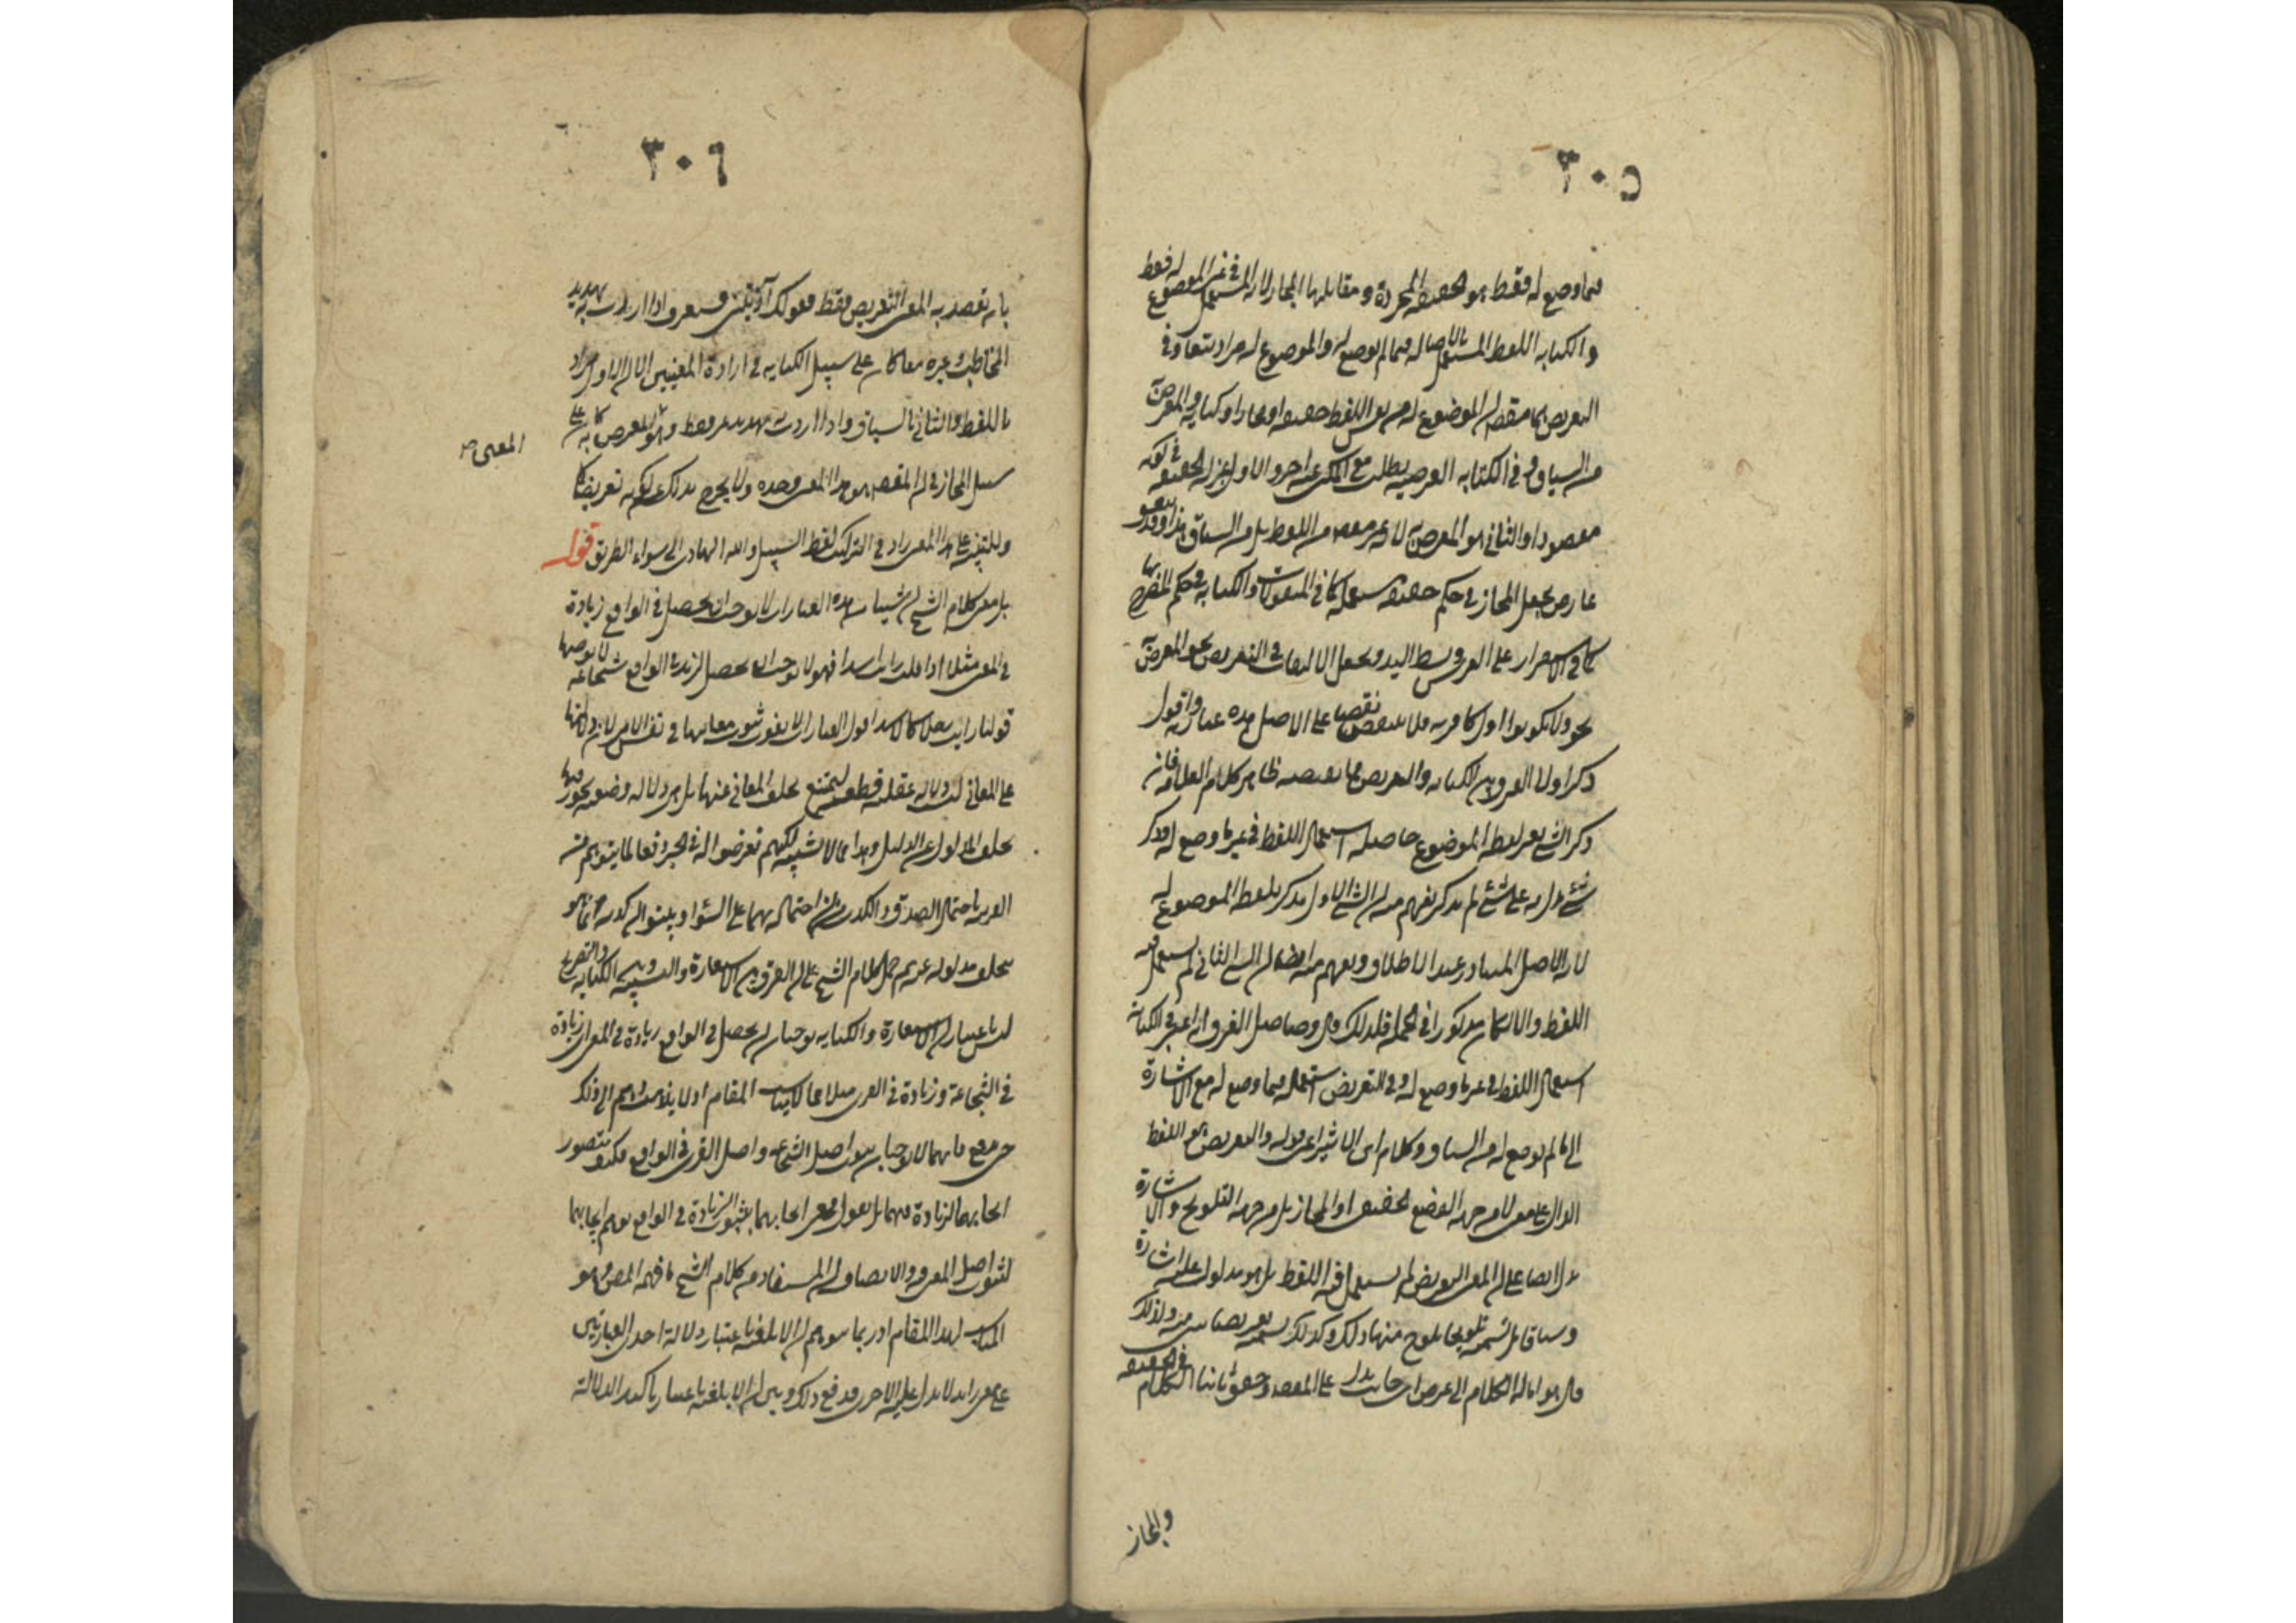 ٣٠٥
فيما وضع له فقط هو الحقيقة المجردة ومقابلها المجاز لانه المستعمل في غير الموضوع له فقط
والكناية اللفظ المستعمل بالاصالة فيما لم يوضع له والموضوع له مراد تبعا وفي
التعريض هما مقصودان الموضوع له من نفس اللفظ حقيقة او مجازا او كناية والمعرض به
من السياق وفي الكناية العرضية يطلب مع المكنى عنه اخر والاول بمنزلة الحقيقة في كونه
مقصودا والثاني هو المعرض به لانه غير مقصود من اللفظ بل من السياق هذا وقد يتفق
عارض يجعل المجاز في حكم حقيقة مستعملة كما في المنقولات والكناية في حكم المصرح بها
كما في الاستواء على العرش وبسط اليد ويجعل الالتفات في التعريض نحو المعرض به
نحو ولا تكونوا اول كافر به فلا ينتهض نقضا على الاصل هذه عبارته واقول
ذكر اولا الفرق بين الكناية والتعريض بما يقتضيه ظاهر كلام العلامة فان
ذكر الشيء بغير لفظه الموضوع حاصله استعمال اللفظ في غير ما وضع له وذكر
شيء يدل به على شيء لم يذكر يفهم منه ان الشيء الاول مذكور بلفظه الموضوع له
لانه الاصل المتبادر عند الاطلاق ويفهم منه ايضا ان الشيء الثاني لم يستعمل فيه
اللفظ والا لكان مذكورا في الجملة فلذلك قال وحاصل الفرق انه اعتبر في الكناية
استعمال اللفظ في غير ما وضع له وفي التعريض استعماله فيما وضع له مع الاشارة
الى ما لم يوضع له من السياق وكلام ابن الاثير اعني قوله والتعريض هو اللفظ
الدال على معنى لا من جهة الوضع الحقيقي او المجازي بل من جهة التلويح والاشارة
يدل ايضا على ان المعنى التعريضي لم يستعمل فيه اللفظ بل هو مدلول عليه اشارة
وسياقا بل تسميته تلويحا يلوح منها ذلك وكذلك تسميته تعريضا ينبئ عنه ولذلك
قال هو امالة الكلام الى عرض اي جانب يدل على المقصود وحقق ثانيا الكلام في الحقيقة
والمجاز
٣٠٦
بان تقصد به المعنى التعريضي فقط فقولك آذيتني فستعرف اذا اردت به تهديد
المخاطب وغيره معا كان على سبيل الكناية في ارادة المعنيين الا ان الاول مراد
باللفظ والثاني بالسياق واذا اردت به تهديد غيره فقط وهو المعرض به كان على
المعنى صح
سبيل المجاز في ان المقصود هو هذا المعنى وحده ولا يخرج بذلك عن كونه تعريضا
وللتنبيه على هذا المعنى زاد في التركيب لفظ السبيل والله الهادي الى سواء الطريق قوله
بل معنى كلام الشيخ ان شيئا من هذه العبارات لا يوجب ان يحصل في الواقع زيادة
في المعنى مثلا اذا قلت رايت اسدا فهو لا يوجب ان يحصل لزيد في الواقع شجاعة لا يوجبها
قولنا رايت رجلا كالاسد اقول العبارات لا يفوت ثبوت معانيها في نفس الامر لان دلالتها
على المعاني ليست دلالة عقلية قطعية يمتنع تخلف المعاني عنها بل هي دلالة وضعية يجوز فيها
تخلف المدلول عن الدليل وهذا مما لا شبهة فيه لكنهم تعرضوا له في الخبر دفعا لما يتوهم من
العبارة باحتمال الصدق والكذب من احتماله لهما على السواء وبينوا ان كذبه انما هو
تخلف مدلوله عنه ثم حمل كلام الشيخ على ان الفرق بين الاستعارة والتشبيه وبين الكناية والتصريح
ليس باعتبار ان الاستعارة والكناية يوجبان ان يحصل في الواقع زيادة في المعنى اي زيادة
في الشجاعة وزيادة في القرى مثلا مما لا يناسب المقام اذ لا يذهب وهم الى ذلك
حتى يدفع بانهما لا يوجبان ثبوت اصل الشجاعة واصل القرى في الواقع فكيف يتصور
ايجابهما لزيادة فيهما بل نقول معنى ايجابهما لثبوت الزيادة في الواقع يوهم ايجابهما
لثبوت اصل المعنى والانصاف ان المستفاد من كلام الشيخ ما فهمه المصنف وهو
المناسب لهذا المقام اذ ربما يتوهم ان الابلغية باعتبار دلالة احدى العبارتين
على معنى زائد لا يدل عليه الاخرى فدفع ذلك وبين ان الابلغية باعتبار تاكيد الدلالة